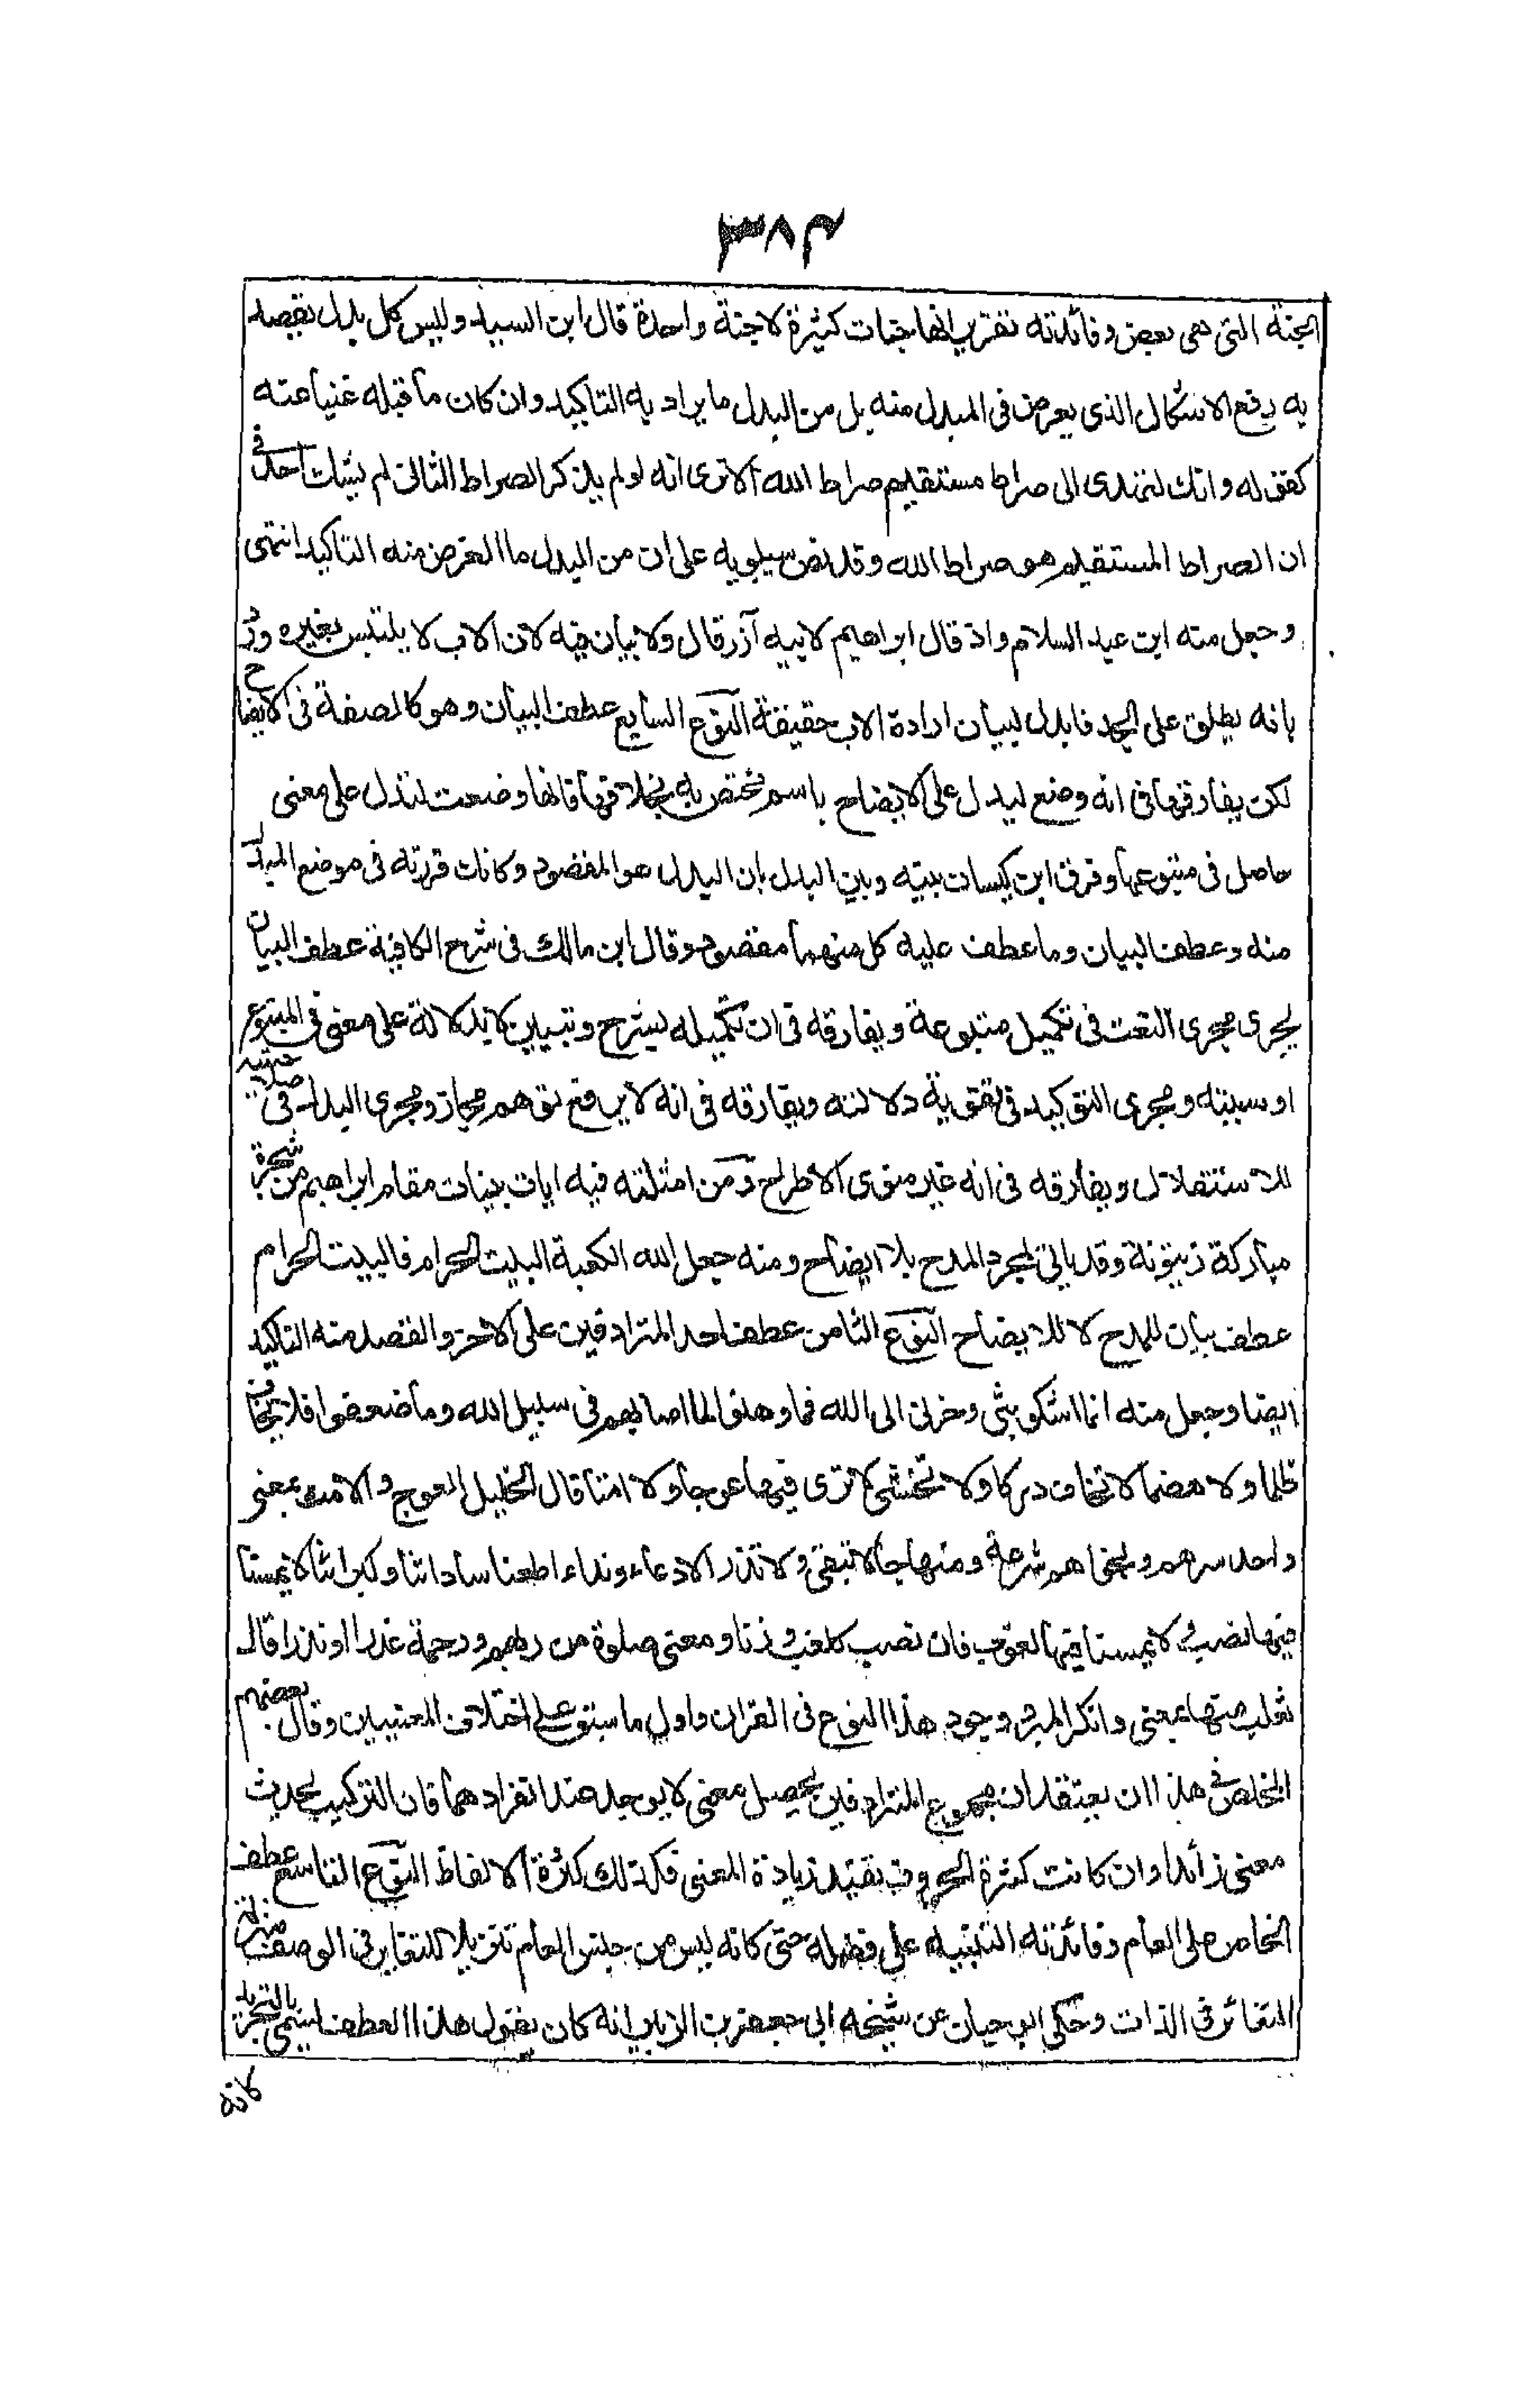 ٣٨٤
الجنة التى هى بعض وفائدته تقرير انها جنات كثيرة لا جنة واحدة قال ابن السيد وليس كل بدل يقصد
به رفع الاشكال الذى يعرض فى المبدل منه بل من البدل ما يراد به التاكيد وان كان ما قبله غنيا عنه
كقوله وانك لتهدى الى صراط مستقيم صراط الله الا ترى انه لو لم يذكر الصراط الثانى لم يشك احد فى
ان الصراط المستقيم هو صراط الله وقد نص سيبويه على ان من البدل ما الغرض منه التاكيد انتهى
وجعل منه ابن عبد السلام واذ قال ابراهيم لابيه آزر قال ولا بيان فيه لان الاب لا يلتبس بغيره ورُدّ
بانه يطلق على الجد فابدل لبيان ارادة الاب حقيقة النوع السابع عطف البيان وهو كالصفة فى الايضاح
لكن يفارقها فى انه وضع ليدل على الايضاح باسم مختص به بخلافها فانها وضعت لتدل على معنى
حاصل فى متبوعها وفرق ابن كيسان بينه وبين البدل بان البدل هو المقصود وكانك قررته فى موضع المبدل
منه وعطف البيان وما عطف عليه كل منهما مقصود وقال ابن مالك فى شرح الكافية عطف البيان
يجرى مجرى النعت فى تكميل متبوعة ويفارقه فى ان تكميله بشرح وتبيين لا بدلالة على معنى فى المتبوع
او سببيته ومجرى التوكيد فى تقوية دلالته ويفارقه فى انه لا يرفع توهم مجاز ومجرى البدل فى صلاحيته
للاستقلال ويفارقه فى انه غير منوى الاطراح ومن امثلته فيه ايات بينات مقام ابراهيم من شجرة
مباركة زيتونة وقد ياتى لمجرد المدح بلا ايضاح ومنه جعل الله الكعبة البيت الحرام فالبيت الحرام
عطف بيان للمدح لا للايضاح النوع الثامن عطف احد المترادفين على الاخر والقصد منه التاكيد
ايضا وجعل منه انما اشكو بثى وحزنى الى الله فما وهنوا لما اصابهم فى سبيل الله وما ضعفوا فلا يخاف
ظلما ولا هضما لا تخاف دركا ولا تخشى لا ترى فيها عوجا ولا امتا قال الخليل العوج والامت بمعنى
واحد سرهم ونجواهم شرعة ومنهاجا لا تبقى ولا تذر الا دعاء ونداء اطعنا ساداتنا وكبرائنا لا يمسنا
فيها نصب ولا يمسنا فيها لغوب فان نصب كلغب وزنا ومعنى صلوة من ربهم ورحمة عذرا او نذرا قال
ثعلب هما بمعنى وانكر المبرد وجود هذا النوع فى القران واول ما سبق على اختلاف المعنيين وقال بعضهم
المخلص فى هذا ان يعتقد ان مجموع المترادفين يحصل معنى لا يوجد عند انفرادهما فان التركيب يحدث
معنى زائدا وان كانت كثرة الحروف تفيد زيادة المعنى فكذلك كثرة الالفاظ النوع التاسع عطف
الخاص على العام وفائدته التنبيه على فضله حتى كانه ليس من جنس العام تنزيلا للتغاير فى الوصف منزلة
التغائر فى الذات وحكى ابو حيان عن شيخه ابى جعفر بن الزبير انه كان يقول هذا العطف يسمى بالتجريد
كانه